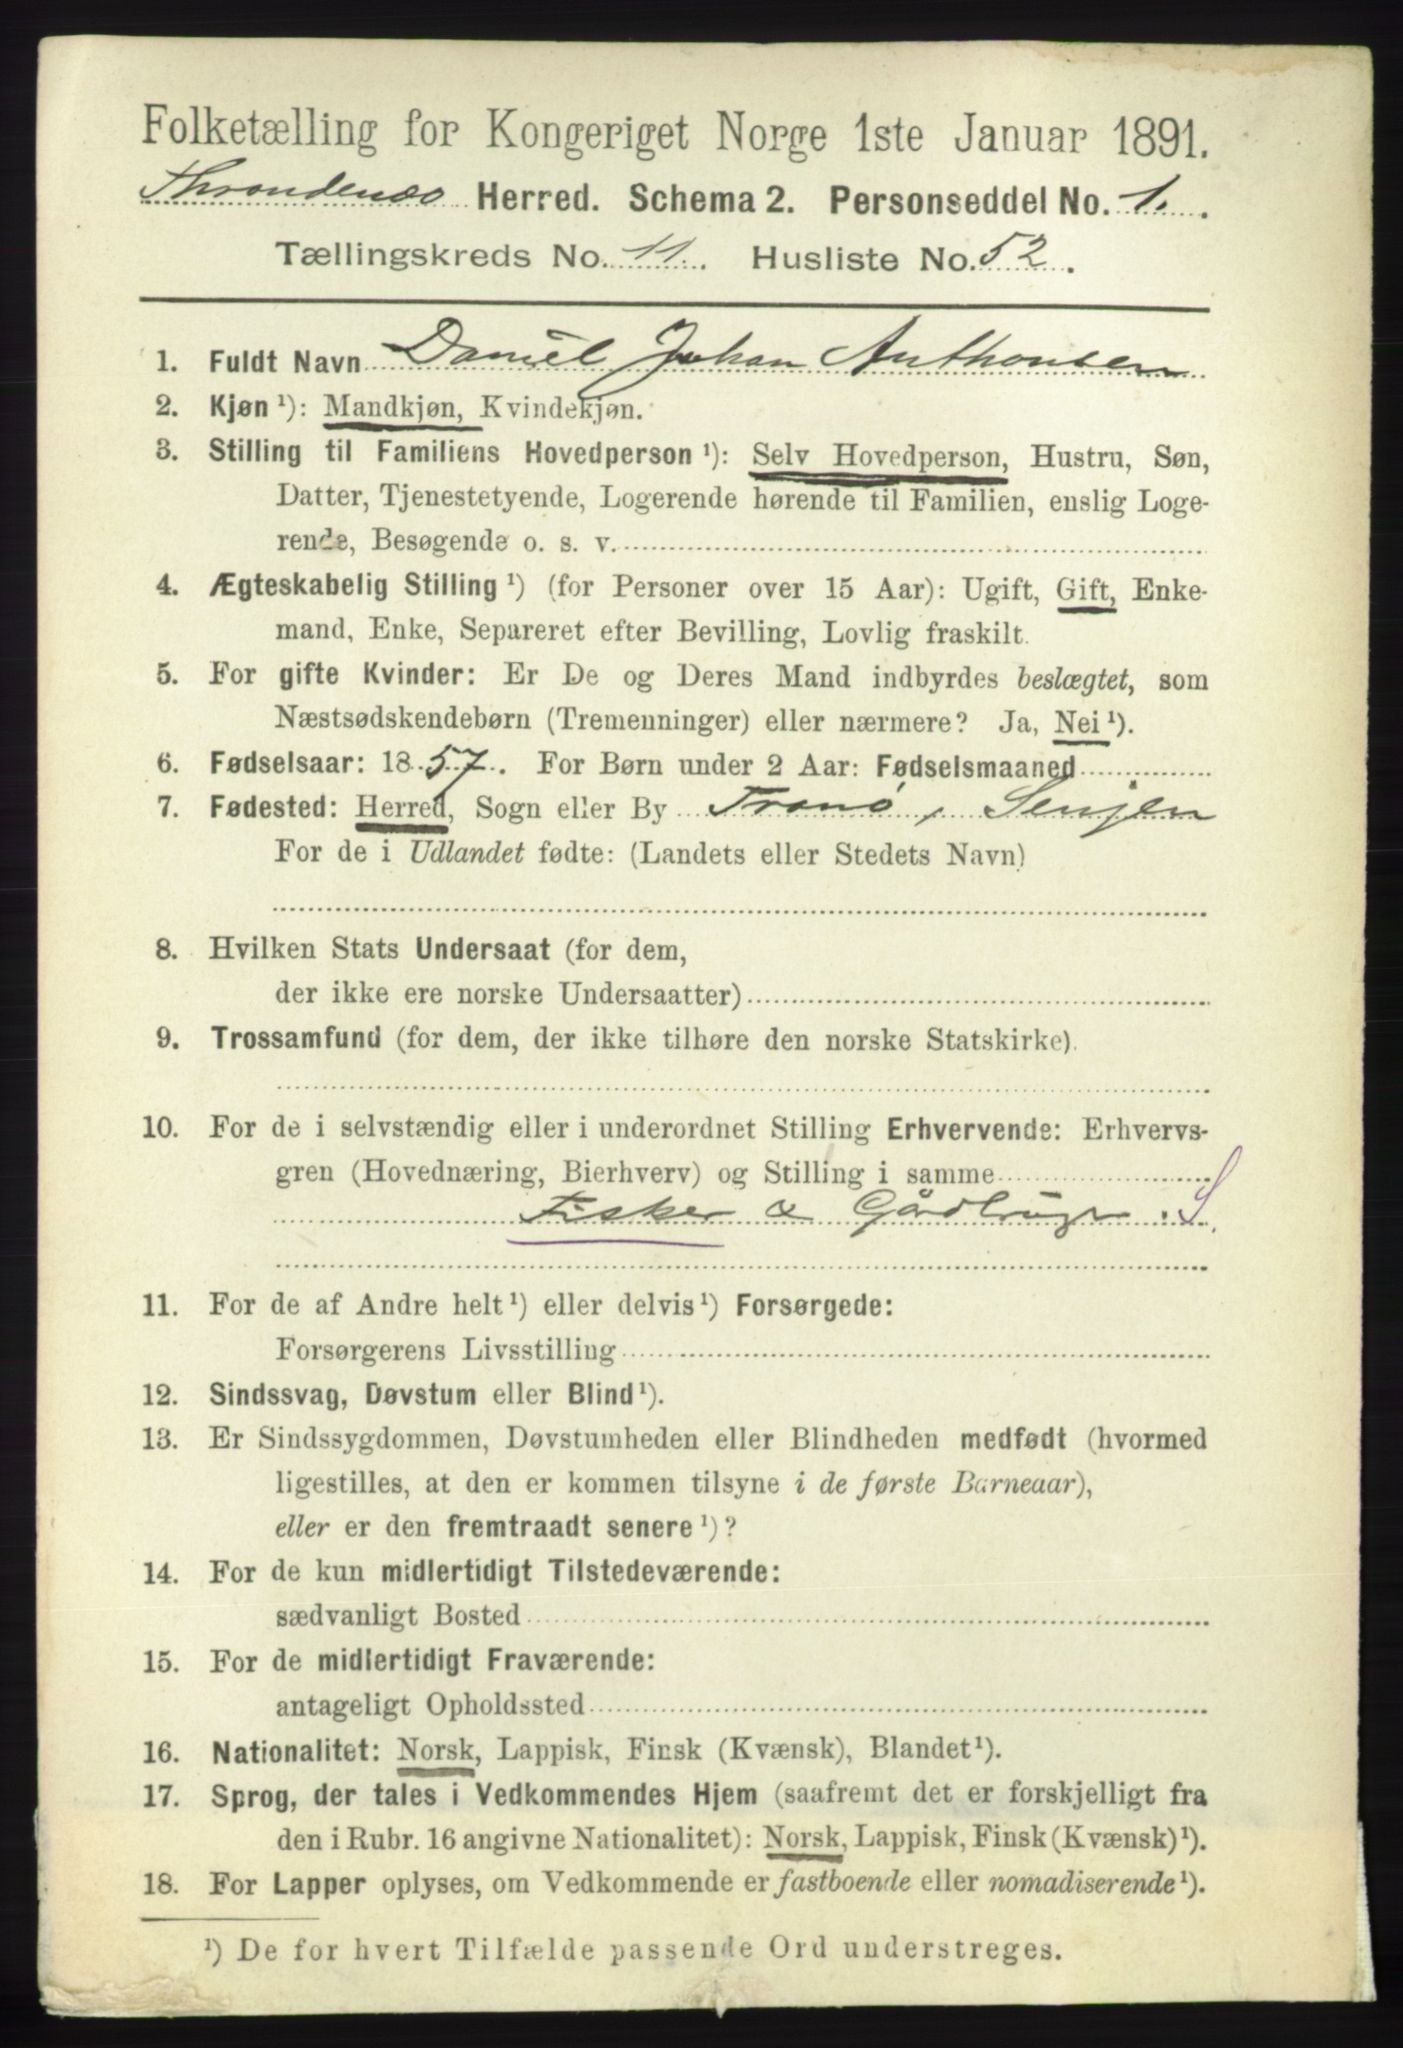 Folketælling for Kongeriget Norge 1ste Januar 1891.
Throndenæs Herred. Schema 2. Personseddel No. 1.
Tællingskreds No. 11. Husliste No. 52.
1. Fuldt Navn Daniel Johan Anthonsen
2. Kjøn ¹): Mandkjøn, Kvindekjøn.
3. Stilling til Familiens Hovedperson ¹): Selv Hovedperson, Hustru, Søn,
Datter, Tjenestetyende, Logerende hørende til Familien, enslig Loge-
rende, Besøgende o. s. v.
4. Ægteskabelig Stilling ¹) (for Personer over 15 Aar): Ugift, Gift, Enke-
mand, Enke, Separeret efter Bevilling, Lovlig fraskilt.
5. For gifte Kvinder: Er De og Deres Mand indbyrdes beslægtet, som
Næstsødskendebørn (Tremenninger) eller nærmere? Ja, Nei ¹).
6. Fødselsaar: 1857. For Børn under 2 Aar: Fødselsmaaned
7. Fødested: Herred, Sogn eller By Tranø, Senjen
For de i Udlandet fødte: (Landets eller Stedets Navn)
8. Hvilken Stats Undersaat (for dem,
der ikke ere norske Undersaatter)
9. Trossamfund (for dem, der ikke tilhøre den norske Statskirke).
10. For de i selvstændig eller i underordnet Stilling Erhvervende: Erhvervs-
gren (Hovednæring, Bierhverv) og Stilling i samme
Fisker & Gårdbruger. S.
11. For de af Andre helt ¹) eller delvis ¹) Forsørgede:
Forsørgerens Livsstilling
12. Sindssvag, Døvstum eller Blind ¹).
13. Er Sindssygdommen, Døvstumheden eller Blindheden medfødt (hvormed
ligestilles, at den er kommen tilsyne i de første Barneaar),
eller er den fremtraadt senere ¹)?
14. For de kun midlertidigt Tilstedeværende:
sædvanligt Bosted
15. For de midlertidigt Fraværende:
antageligt Opholdssted
16. Nationalitet: Norsk, Lappisk, Finsk (Kvænsk), Blandet ¹).
17. Sprog, der tales i Vedkommendes Hjem (saafremt det er forskjelligt fra
den i Rubr. 16 angivne Nationalitet): Norsk, Lappisk, Finsk (Kvænsk) ¹).
18. For Lapper oplyses, om Vedkommende er fastboende eller nomadiserende ¹).
¹) De for hvert Tilfælde passende Ord understreges.